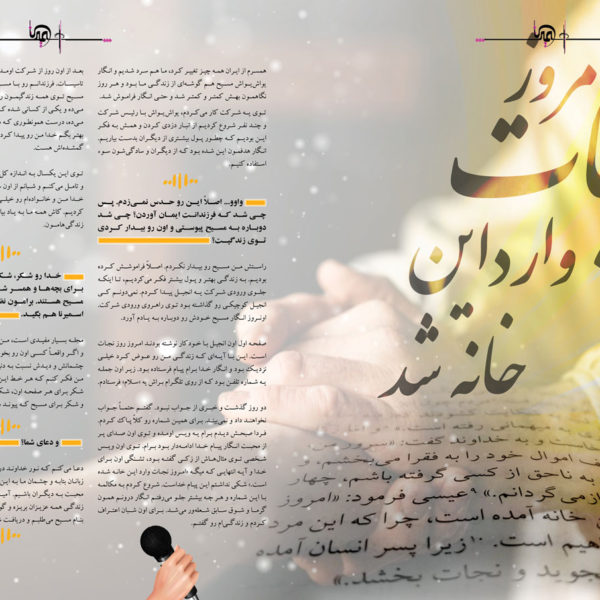 امروز
نجات
وارد این
خانه شد
مهمانی رفته است.»
و به خداوند گفت: «سرور من،
اموال خود را به فقرا می‌بخشم،
به ناحق از کسی گرفته باشم، چهار
بازمی‌گردانم.» ۹عیسی فرمود: «امروز
خانه آمده است، چرا که این مرد
ابراهیم است. ۱۰زیرا پسر انسان آمده
بجوید و نجات بخشد.»
همسرم از ایران همه چیز تغییر کرد، ما هم سرد شدیم و انگار
یواش‌یواش مسیح هم گوشه‌ای از زندگی ما بود و هر روز
نگاهمون بهش کمتر و کمتر شد و حتی انگار فراموش شد.
توی یه شرکت کار می‌کردم، یواش‌یواش با رئیس شرکت
و چند نفر شروع کردیم از انبار دزدی کردن و همش به فکر
این بودیم که چطور پول بیشتری از دیگران بدست بیاریم.
انگار هدفمون این شده بود که از دیگران و سادگی‌شون سوء
استفاده کنیم.
واوو... اصلاً این رو حدس نمی‌زدم. پس
چی شد که فرزندانت ایمان آوردن؟ چی شد
دوباره به مسیح پیوستی و اون رو بیدار کردی
توی زندگیت؟
راستش من مسیح رو بیدار نکردم. اصلاً فراموشش کرده
بودیم. به زندگی بهتر و پول بیشتر فکر می‌کردیم، تا اینکه
جلوی ورودی شرکت یه انجیل پیدا کردم. نمی‌دونم کی
انجیل کوچیکی رو گذاشته بود توی راهروی ورودی شرکت.
اونروز انگار مسیح خودش رو دوباره به یادم آورد.
صفحه اول اون انجیل با خودکار نوشته بودند امروز روز نجات
است. این آیه‌ای که زندگی من رو عوض کرد خیلی
نزدیک بود و انگار خدا برام پیام فرستاده بود. زیر اون جمله
یه شماره تلفن بود که از روی تلگرام براش یه «سلام» فرستادم.
دو روز گذشت و خبری از جواب نبود. گفتم حتماً جواب
نخواهند داد و نمی‌یاد. برای همین شماره رو کلاً پاک کردم.
فردا صبحش دیدم برام یه ویس اومده و توی اون صدای پر
از محبت انگار پیام خدا ادامه‌دار بود برام. توی اون ویس
شخصی توی مثال‌هاش از زکی گفته بود، تشنگی اون برای
خدا و آیه انتهایی که میگه «امروز نجات وارد این خانه شده
است»، شکی نداشتم این پیام خداست. شروع کردم به مکالمه
با این شماره و هر چه بیشتر جلو می‌رفتم انگار درونم همون
گرما و شوق سابق شعله‌ور می‌شد. برای اون شبان اعتراف
کردم و زندگی‌ام رو گفتم.
بعد از اون روز از شرکت اومد
تاسیسات. فرزندانم رو با مس
مسیح توی همه زندگیمون ر
می‌ده و یکی از کسانی شده ک
می‌ده، درست همونطوری که
بهتر بگم خدا من رو پیدا کرد
گمشده‌اش هست.
توی این یکسال به اندازه کل
و تامل می کنم و شبانم از اون
خدا من و خانواده‌ام رو خیلی
کردیم. کاش همه ما به یاد بیا
زندگی‌هامون.
خدا رو شکر، شک
برای بچه‌ها و همسر ش
مسیح هستند. برامون نظ
اسمیرنا هم بگید.
مجله بسیار مفیدی است، من
و اگر واقعاً کسی اون رو بخو
چشمانش و دیدش نسبت به دن
من فکر کنم که هر خط این
شکر برای هر صفحه اون، شک
و شکر برای مسیح که پیوند
و دعای شما!
دعا می‌کنم که نور خداوند در
زبانتان بتابه و چشمان ما به این
محبت به دیگران باشم. آمین
زندگی همه عزیزان بریزه و گو
بنام مسیح می‌طلبم و دریافت